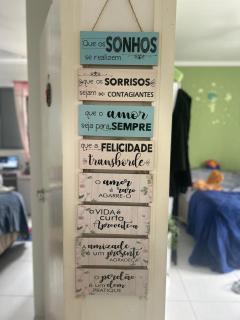 Que os SONHOS
se realizem
Que os SORRISOS
sejam CONTAGIANTES
que o amor
seja para SEMPRE
que a FELICIDADE
transborde
o amor
é raro
AGARRE-O
a VIDA é
curta
Aproveite-a
a amizade
é um presente
AGRADEÇA
o perdão
é um dom
PRATIQUE